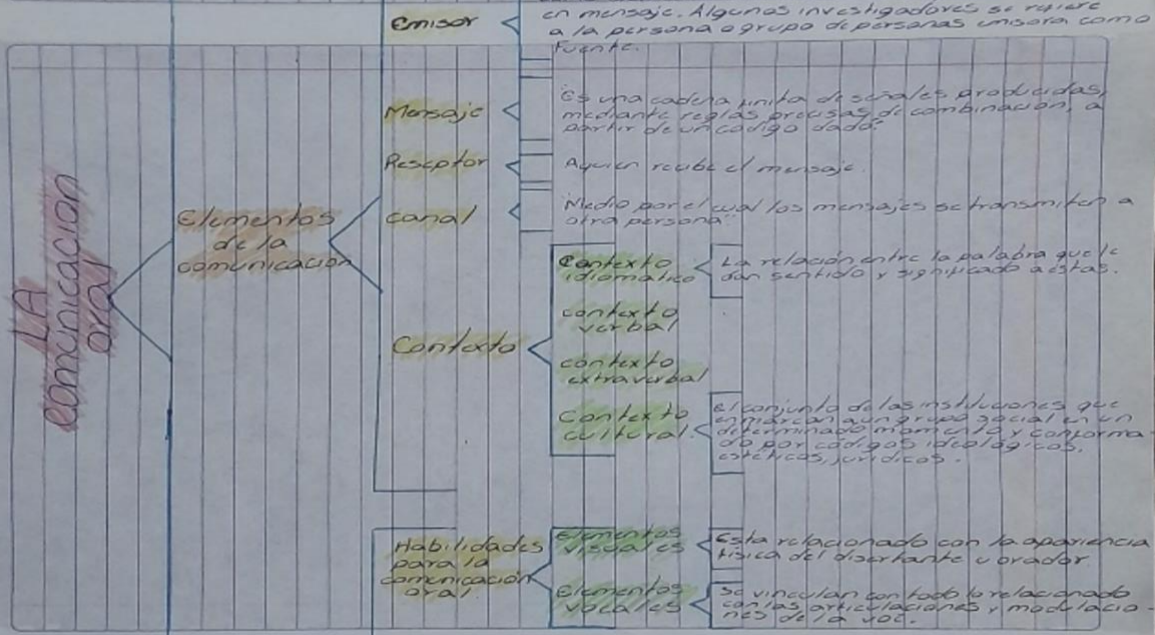 LA
comunicacion
oral
Elementos
de la
comunicación
Emisor
en mensaje. Algunos investigadores se refiere
a la persona o grupo de personas emisora como
Fuente.
Mensaje
"Es una cadena finita de señales producidas,
mediante reglas precisas de combinación, a
partir de un codigo dado".
Reseptor
Aquien recibe el mensaje.
canal
"Medio por el cual los mensajes se transmiten a
otra persona".
Contexto
Contexto
idiomatico
La relación entre la palabra que le
dan sentido y significado a estas.
contexto
verbal
contexto
extraverbal
Contexto
cultural.
El conjunto de las instituciones que
enmarcan aun grupo social en un
determinado momento y conforma-
do por códigos ideológicos,
estéticos, jurídicos.
Habilidades
para la
comunicación
oral.
Elementos
visuales
Esta relacionado con la apariencia
física del disertante u orador.
Elementos
vocales
Se vinculan con todo lo relacionado
con las articulaciones y modulacio-
nes de la voc.